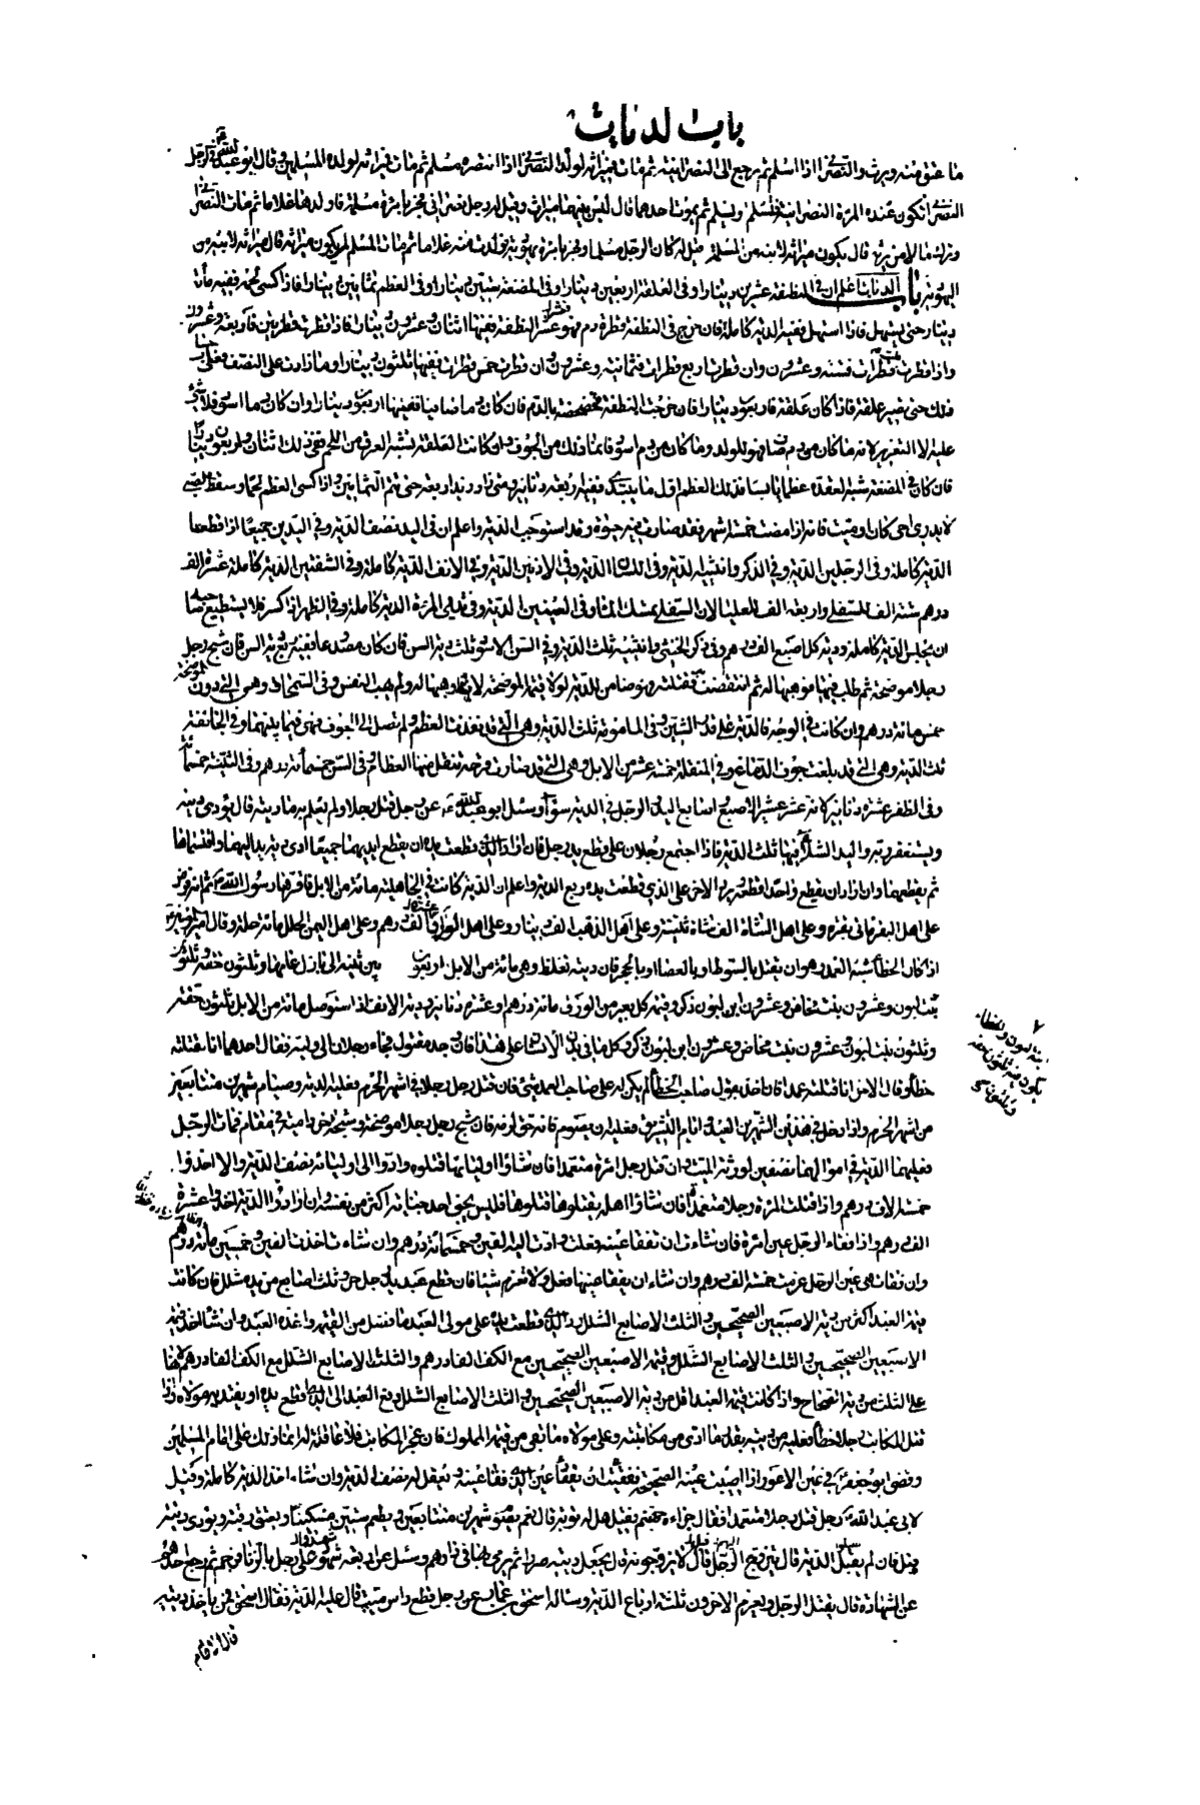 باب الديات
ما عتق منه ويرث والنصراني اذا اسلم ثم رجع الى النصرانية ثم مات فميراثه لولده النصراني اذا تنصر مسلم ثم مات فميراثه لولده المسلمين وقال ابو عبدالله في الرجل
النصراني تكون عنده المرءة النصرانية فتسلم او يسلم ثم يموت احدهما قال ليس بينهما ميراث وقيل له رجل نصراني فجر بامرءة مسلمة فاولدها غلاما ثم مات النصراني
وترك مالا من يرثه قال يكون ميراثه لابنه من المسلمة قيل له كان الرجل مسلما وفجر بامرءة يهودية فولدت منه غلاما ثم مات المسلم لمن يكون ميراثه قال ميراثه لابنه من
اليهودية باب الديات اعلم ان في النطفة عشرين دينارا وفي العلقة اربعين دينارا وفي المضغة ستين دينارا وفي العظم ثمانين دينارا فاذا كسي لحمه ففيه مأة
دينار حتى يستهل فاذا استهل ففيه الدية كاملة فان خرج في النطفة قطرة دم فهو عشر النطفة ففيها اثنان وعشرون دينارا فاذا قطرت قطرتين فاربعة وعشرون
واذا قطرت قطرات فستة وعشرون وان قطرت اربع قطرات فثمانية وعشرون وان قطرت خمس قطرات ففيها ثلثون دينارا وما زادت على النصف فعلى حساب
ذلك حتى تصير علقة فاذا كان علقة فاربعون دينارا فان خرجت النطفة مخضخضة بالدم فان كان دما صافيا ففيها اربعون دينارا وان كان دما اسود فلا شئ
عليه الا التعزير لانه ما كان من دم صاف فهو للولد وما كان من دم اسود فانما ذلك من الجوف وان كانت العلقة تشبه العرق من اللحم ففي ذلك اثنان واربعون دينارا
فان كان في المضغة شبه العقدة عظما يابسا فذلك العظم اول ما يبتدئ ففيه اربعة دنانير ومتى زاد زيد اربعة حتى تتم الثمانين واذا كسى العظم لحما وسقط الصبي
لا يدرى احى كان او ميت فانه اذا مضت خمسة اشهر فقد صارت فيه حيوة وقد استوجب الدية واعلم ان في اليد نصف الدية وفي اليدين جميعا اذا قطعتا
الدية كاملة وفي الرجلين الدية وفي الذكر وانثييه الدية وفي اللسان الدية وفي الاذنين الدية وفي الانف الدية كاملة وفي الشفتين الدية كاملة عشرة الف
درهم ستة الف للسفلى واربعة الف للعليا لان السفلى يمسك الماء وفي العينين الدية وفي ثديي المرءة الدية كاملة وفي الظهر اذا كسر فلا يستطيع صاحبه
ان يجلس الدية كاملة ودية كل اصبع الف درهم وفي ذكر الخنثى وانثييه ثلث الدية وفي السن الاسود ثلث دية السن فان كان مصدعا ففيه ربع دية السن فان شج رجل
رجلا موضحة ثم طلب فيها فوهبها له ثم انتقضت به فقتلته فهو ضامن للدية الا قيمة الموضحة لانه وهبها له ولم يهب النفس وفي السمحاق وهي التي دون الموضحة
خمس مائة درهم وان كانت في الوجه فالدية على قدر الشين وفي المامومة ثلث الدية وهي التي قد نفذت العظم ولم تصل الى الجوف فهي فيما بينهما وفي الجائفة
ثلث الدية وهي التي قد بلغت جوف الدماغ وفي المنقلة خمسة عشر من الابل وهي التي قد صارت قرحة تنقل منها العظام وفي السن خمسمأة درهم وفي الثنية خمسمأة
وفي الظفر عشرة دنانير لانه عشر عشير الاصبع اصابع اليد والرجل في الدية سواء وسئل ابو عبدالله عن رجل قتل رجلا ولم يعلم به ما ديته قال يؤدى ديته
ويستغفر ربه واليد الشلاء فيها ثلث الدية فاذا اجتمع رجلان على قطع يد رجل فان اراد الذي قطعت يده ان يقطع ايديهما جميعا ادى دية يد اليهما واقتسماها
ثم يقطعهما وان اراد ان يقطع واحدا قطعه ويرد الاخر على الذي قطعت يده ربع الدية واعلم ان الدية كانت في الجاهلية مائة من الابل فاقرها رسول الله ثم انه فرض
على اهل البقر مائتي بقرة وعلى اهل الشاة الف شاة ثنية وعلى اهل الذهب الف دينار وعلى اهل الورق عشرة الف درهم وعلى اهل اليمن الحلل مائة حلة وقال امير المؤمنين
اذا كان الخطأ شبه العمد وهو ان يقتل بالسوط او بالعصا او بالحجر فان ديته تغلظ وهي مائة من الابل اربعون بين ثنية الى بازل عامها وثلثون حقة وثلثون
بنت لبون وعشرون بنت مخاض وعشرون ابن لبون ذكر وقيمة كل بعير من الورق مائة درهم وعشرة دنانير ودية الانف اذا استوصل مائة من الابل ثلثون حقة
وثلثون بنت لبون وعشرون بنت مخاض وعشرون ابن لبون ذكر وكل ما في بدن الانسان على هذا فان وجد مقتول فجاء رجلان الى وليه فقال احدهما انا قتلته
خطأ وقال الاخر انا قتلته عمدا فان اخذ بقول صاحب الخطأ لم يكن له على صاحب العمد شئ فان قتل رجل رجلا في اشهر الحرم فعليه الدية وصيام شهرين متتابعين
من اشهر الحرم واذا دخل في هذين الشهرين العيد وايام التشريق فعليه ان يصوم فانه حق لزمه فان شج رجل رجلا موضحة وشجه اخر دامية في مقام فمات الرجل
فعليهما الدية في اموالهما نصفين لورثة الميت وان قتل رجل امرءة متعمدا فان شاؤا اولياؤها قتلوه وادوا الى اوليائه نصف الدية والا اخذوا
خمسة الاف درهم واذا قتلت المرءة رجلا متعمدة فان شاؤا اهله يقتلوها قتلوها فليس يجنى احد جناية اكثر من نفسه وان ارادوا الدية اخذوا عشرة
الف درهم واذا فقاء الرجل عين امرءة فان شاءت ان تفقأ عينه فعلت وادت اليه الفين وخمسمائة درهم وان شاءت اخذت الفين وخمسين مائة درهم
وان فقات هي عين الرجل غرمت خمسة الف درهم وان شاء ان يفقأ عينها فعل ولا تغرم شيئا فان قطع عبد يد رجل حر وثلث اصابع من يده شلل فان كانت
قيمة العبد اكثر من دية الاصبعين الصحيحين والثلث الاصابع الشلل رد الذي قطعت يده على مولى العبد ما فضل من القيمة واخذ العبد وان شاء اخذ قيمة
الاصبعين الصحيحين والثلث الاصابع الشلل وقيمة الاصبعين الصحيحين مع الكف الفا درهم والثلث الاصابع الشلل مع الكف الفا درهم لانها
على الثلث من دية الصحاح واذا كانت قيمة العبد اقل من دية الاصبعين الصحيحين والثلث الاصابع الشلل دفع العبد الى الذي قطع يده او يفتديه مولاه واذا
قتل المكاتب رجلا خطأ فعليه من ديته بقدر ما ادى من مكاتبته وعلى مولاه ما بقى من قيمة المملوك فان عجز المكاتب فلا عاقلة له انما ذلك على امام المسلمين
وقضى ابو جعفر في عين الاعور اذا اصيبت عينه الصحيحة ففقئت ان تفقأ عين الذي فقأ عينه ويعقل له نصف الدية وان شاء اخذ الدية كاملة وقيل
لابي عبدالله رجل قتل رجلا متعمدا فقال جزاءه جهنم فقيل هل له توبة قال نعم يصوم شهرين متتابعين ويطعم ستين مسكينا ويعتق رقبة ويؤدى ديته
قيل فان لم يقبل الدية قال يتزوج اليهم قيل لا يزوجونه قال يجعل ديته صررا ثم يرمى بها في دارهم وسئل عن اربعة شهدوا على رجل بالزنا فرجم ثم رجع احدهم
عن الشهادة قال يقتل الرجل ويغرم الاخرون ثلثة ارباع الدية وساله اسحق بن عمار عن رجل قطع راس ميت قال عليه الدية فقال اسحق فمن ياخذ ديته
قال الامام